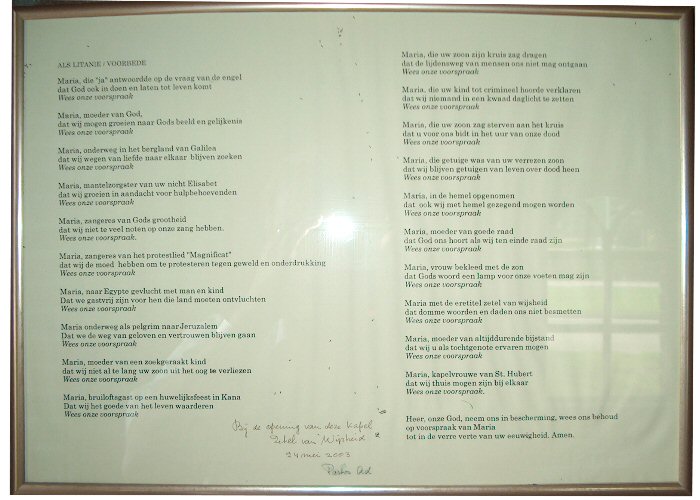 ALS LITANIE / VOORBEDE
Maria, die "ja" antwoordde op de vraag van de engel
dat God ook in doen en laten tot leven komt
Wees onze voorspraak
Maria, moeder van God,
dat wij mogen groeien naar Gods beeld en gelijkenis
Wees onze voorspraak
Maria, onderweg in het bergland van Galilea
dat wij wegen van liefde naar elkaar blijven zoeken
Wees onze voorspraak
Maria, mantelzorgster van uw nicht Elisabet
dat wij groeien in aandacht voor hulpbehoevenden
Wees onze voorspraak
Maria, zangeres van Gods grootheid
dat wij niet te veel noten op onze zang hebben.
Wees onze voorspraak.
Maria, zangeres van het protestlied "Magnificat"
dat wij de moed hebben om te protesteren tegen geweld en onderdrukking
Wees onze voorspraak
Maria, naar Egypte gevlucht met man en kind
Dat we gastvrij zijn voor hen die land moeten ontvluchten
Wees onze voorspraak
Maria onderweg als pelgrim naar Jeruzalem
Dat we de weg van geloven en vertrouwen blijven gaan
Wees onze voorspraak
Maria, moeder van een zoekgeraakt kind
dat wij niet al te lang uw zoon uit het oog te verliezen
Wees onze voorspraak
Maria, bruiloftsgast op een huwelijksfeest in Kana
Dat wij het goede van het leven waarderen
Wees onze voorspraak
Maria, die uw zoon zijn kruis zag dragen
dat de lijdensweg van mensen ons niet mag ontgaan
Wees onze voorspraak
Maria, die uw kind tot crimineel hoorde verklaren
dat wij niemand in een kwaad daglicht te zetten
Wees onze voorspraak
Maria, die uw zoon zag sterven aan het kruis
dat u voor ons bidt in het uur van onze dood
Wees onze voorspraak
Maria, die getuige was van uw verrezen zoon
dat wij blijven getuigen van leven over dood heen
Wees onze voorspraak
Maria, in de hemel opgenomen
dat ook wij met hemel gezegend mogen worden
Wees onze voorspraak
Maria, moeder van goede raad
dat God ons hoort als wij ten einde raad zijn
Wees onze voorspraak
Maria, vrouw bekleed met de zon
dat Gods woord een lamp voor onze voeten mag zijn
Wees onze voorspraak
Maria met de eretitel zetel van wijsheid
dat domme woorden en daden ons niet besmetten
Wees onze voorspraak
Maria, moeder van altijddurende bijstand
dat wij u als tochtgenote ervaren mogen
Wees onze voorspraak
Maria, kapelvrouwe van St. Hubert
dat wij thuis mogen zijn bij elkaar
Wees onze voorspraak.
Heer, onze God, neem ons in bescherming, wees ons behoud
op voorspraak van Maria
tot in de verre verte van uw eeuwigheid. Amen.
Bij de opening van deze Kapel
Zetel van Wijsheid
24 mei 2003
Pastor Ad